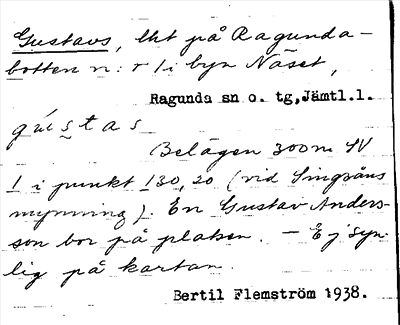 Gustavs, lht på Ragunda-
botten n:r 1 i byn Näset,
Ragunda sn o. tg, Jämtl.l.
gústas
Belägen 300 m SV
1 i punkt 130,20 (vid Singsåns
mynning). En Gustav Anders-
son bor på platsen. - Ej syn-
lig på kartan.
Bertil Flemström 1938.